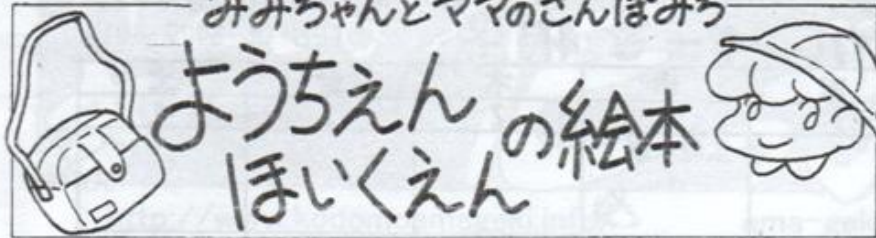 みみちゃんとママのさんぽみち
ようちえん
ほいくえん
の絵本